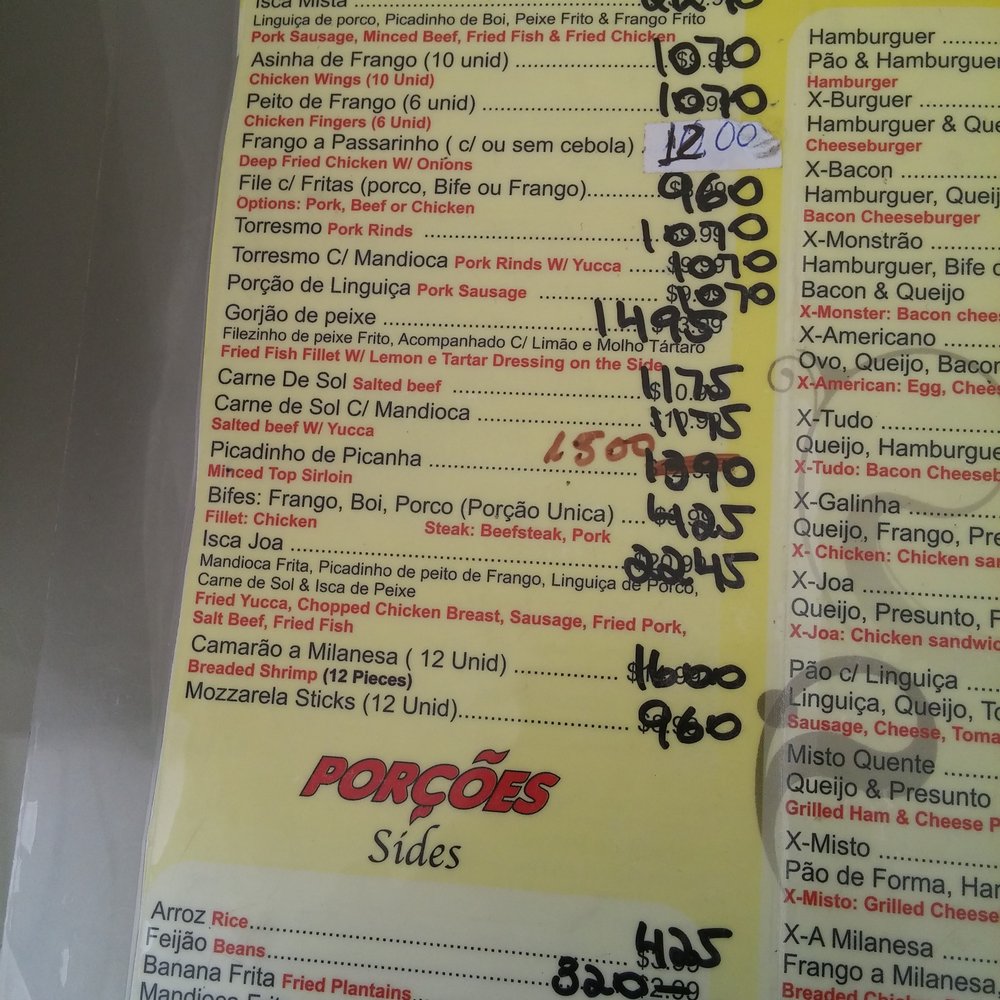 Isca Mista
Linguiça de porco, Picadinho de Boi, Peixe Frito & Frango Frito
Pork Sausage, Minced Beef, Fried Fish & Fried Chicken
Asinha de Frango (10 unid) 1070
Chicken Wings (10 Unid)
Peito de Frango (6 unid) 1070
Chicken Fingers (6 Unid)
Frango a Passarinho ( c/ ou sem cebola) 12.00
Deep Fried Chicken W/ Onions
File c/ Fritas (porco, Bife ou Frango) 960
Options: Pork, Beef or Chicken
Torresmo Pork Rinds 1070
Torresmo C/ Mandioca Pork Rinds W/ Yucca 1070
Porção de Linguiça Pork Sausage 1070
Gorjão de peixe 1495
Filezinho de peixe Frito, Acompanhado C/ Limão e Molho Tártaro
Fried Fish Fillet W/ Lemon e Tartar Dressing on the Side
Carne De Sol Salted beef 1175
Carne de Sol C/ Mandioca 1175
Salted beef W/ Yucca
Picadinho de Picanha 1500 1390
Minced Top Sirloin
Bifes: Frango, Boi, Porco (Porção Unica) 425
Fillet: Chicken Steak: Beefsteak, Pork
Isca Joa 2245
Mandioca Frita, Picadinho de peito de Frango, Linguiça de Porco,
Carne de Sol & Isca de Peixe
Fried Yucca, Chopped Chicken Breast, Sausage, Fried Pork,
Salt Beef, Fried Fish
Camarão a Milanesa ( 12 Unid) 1600
Breaded Shrimp (12 Pieces)
Mozzarela Sticks (12 Unid) 960
PORÇÕES
Sides
Arroz Rice 425
Feijão Beans
Banana Frita Fried Plantains 320 $2.99
Mandioca
Hamburguer
Pão & Hamburguer
Hamburger
X-Burguer
Hamburguer &
Cheeseburger
X-Bacon
Hamburguer,
Bacon Cheeseburger
X-Monstrão
Hamburguer, Bife
Bacon & Queijo
X-Monster: Bacon
X-Americano
Ovo, Queijo, Bacon
X-American: Egg,
X-Tudo
Queijo,
X-Tudo: Bacon
X-Galinha
Queijo, Frango,
X- Chicken: Chicken
X-Joa
Queijo, Presunto,
X-Joa: Chicken
Pão c/ Linguiça
Linguiça, Queijo,
Sausage, Cheese,
Misto Quente
Queijo & Presunto
Grilled Ham & Cheese
X-Misto
Pão de Forma,
X-Misto: Grilled Cheese
X-A Milanesa
Frango a Milanesa
Breaded